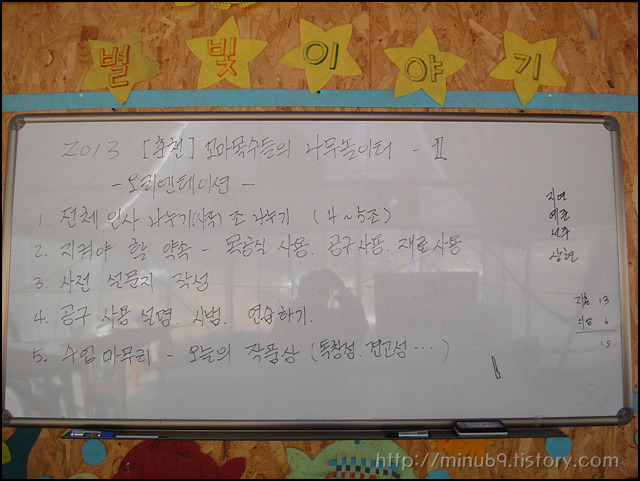 별빛이야기
2013 [춘천] 꼬마목수들의 나무놀이터 - Ⅱ
- 오리엔테이션 -
1. 전체 인사 나누기(시작) 조 나누기 (4~5조)
2. 지켜야 할 약속 - 목공실 사용. 공구사용. 재료사용
3. 사전 설문지 작성
4. 공구 사용 설명. 시범. 연습하기.
5. 수업 마무리 - 오늘의 작품상 (독창성. 견고성 ···)
지연
상현
13
6
19
http://minub9.tistory.com